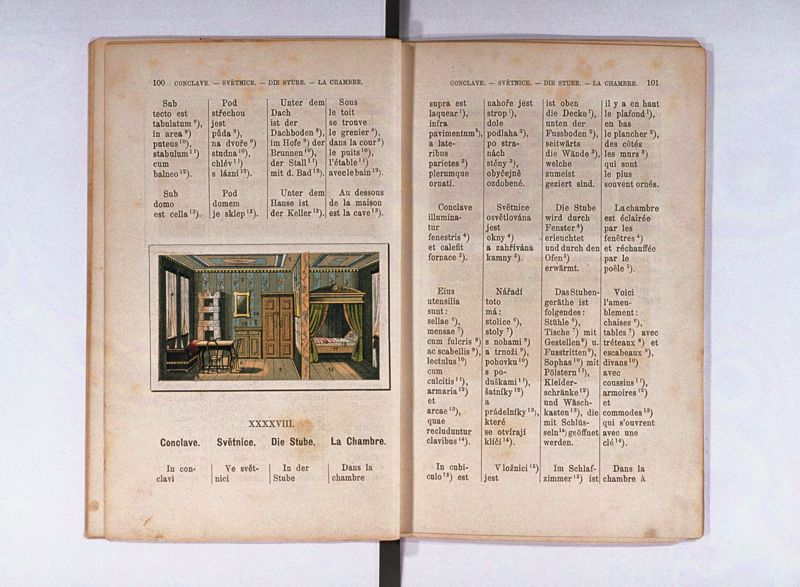 100 CONCLAVE. — SVĚTNICE. — DIE STUBE. — LA CHAMBRE.
Sub
tecto est
tabulatum ⁸),
in area ⁹)
puteus ¹⁰)
stabulum ¹¹)
cum
balneo ¹²).
Sub
domo
est cella ¹³).
Pod
střechou
jest
půda ⁸),
na dvoře ⁹)
studna ¹⁰),
chlév ¹¹)
s lázní ¹²).
Pod
domem
je sklep ¹³).
Unter dem
Dach
ist der
Dachboden ⁸),
im Hofe ⁹) der
Brunnen ¹⁰),
der Stall ¹¹)
mit d. Bad ¹²).
Unter dem
Hause ist
der Keller ¹³).
Sous
le toit
se trouve
le grenier ⁸),
dans la cour ⁹)
le puits ¹⁰),
l'étable ¹¹)
avec le bain ¹²).
Au dessous
de la maison
est la cave ¹³).
XXXXVIII.
Conclave. Světnice. Die Stube. La Chambre.
In con-
clavi
Ve svět-
nici
In der
Stube
Dans la
chambre
CONCLAVE. — SVĚTNICE. — DIE STUBE. — LA CHAMBRE. 101
supra est
laquear ¹),
infra
pavimentum ²),
a late-
ribus
parietes ³)
plerumque
ornati.
Conclave
illumina-
tur
fenestris ⁴)
et calefit
fornace ⁵).
Eius
utensilia
sunt:
sellae ⁶),
mensae ⁷)
cum fulcris ⁸)
ac scabellis ⁹),
lectulus ¹⁰)
cum
culcitis ¹¹),
armaria ¹²)
et
arcae ¹³),
quae
recluduntur
clavibus ¹⁴).
In cubi-
culo ¹⁵) est
nahoře jest
strop ¹),
dole
podlaha ²),
po stra-
nách
stěny ³),
obyčejně
ozdobené.
Světnice
osvětlována
jest
okny ⁴)
a zahřívána
kamny ⁵).
Nářadí
toto
má:
stolice ⁶),
stoly ⁷)
s nohami ⁸)
a trnoži ⁹),
pohovku ¹⁰)
s po-
duškami ¹¹),
šatníky ¹²)
a
prádelníky ¹³),
které
se otvírají
klíči ¹⁴).
V ložnici ¹⁵)
jest
ist oben
die Decke ¹),
unten der
Fussboden ²),
seitwärts
die Wände ³),
welche
zumeist
geziert sind.
Die Stube
wird durch
Fenster ⁴)
erleuchtet
und durch den
Ofen ⁵)
erwärmt.
Das Stuben-
geräthe ist
folgendes:
Stühle ⁶),
Tische ⁷) mit
Gestellen ⁸) u.
Fusstritten ⁹),
Sophas ¹⁰) mit
Pölstern ¹¹),
Kleider-
schränke ¹²)
und Wäsch-
kasten ¹³), die
mit Schlüs-
seln ¹⁴) geöffnet
werden.
Im Schlaf-
zimmer ¹⁵) ist
il y a en haut
le plafond ¹),
en bas
le plancher ²),
des côtés
les murs ³)
qui sont
le plus
souvent ornés.
La chambre
est éclairée
par les
fenêtres ⁴)
et réchauffée
par le
poêle ⁵).
Voici
l'ameu-
blement:
chaises ⁶),
tables ⁷) avec
tréteaux ⁸) et
escabeaux ⁹),
divans ¹⁰)
avec
coussins ¹¹),
armoires ¹²)
et
commodes ¹³)
qui s'ouvrent
avec une
clé ¹⁴).
Dans la
chambre à